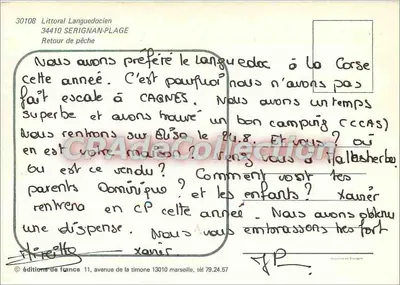 30108 Littoral Languedocien
34410 SERIGNAN-PLAGE
Retour de pêche
Nous avons préféré le Languedoc à la Corse
cette année. C'est pourquoi nous n'avons pas
fait escale à CAGNES. Nous avons un temps
superbe et avons trouvé un bon camping (CCAS)
Nous rentrons sur le 24.8. Et vous? où
en est votre maison? Tenez vous à
ou est ce vendu? Comment vont tes
parents Dominique? et les enfants? Xavier
rentrera en CP cette année. Nous avons obtenu
une dispense. Nous vous embrassons très fort
Mireille Xavier JP
© éditions de france 11, avenue de la timone 13010 marseille, tél 79.24.57
CPAdaCollection